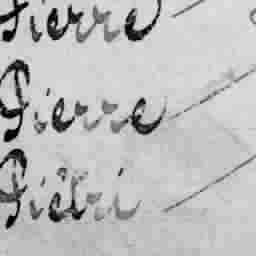 Pierre
Pierre
Piétri